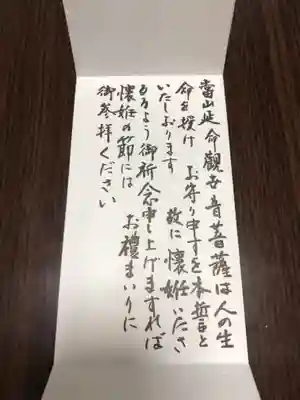 當山延命觀世音菩薩は人の生
命を授け お守り申すを本誓と
いたしおります 故に 懐妊いたさ
るるよう御祈念申し上げますれば
懐妊の節には お禮まいりに
御参拝ください